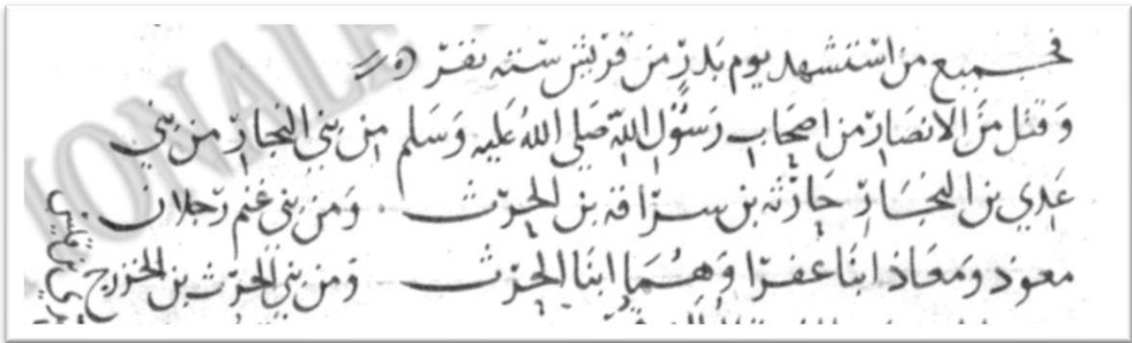 فجميع من استشهد يوم بدر من قريش سته نفر
وقتل من الانصار من اصحاب رسول الله صلى الله عليه وسلم من بني النجار من بني
عدي بن النجار حارثه بن سراقه بن الحرث ومن بني غنم رجلان
معوذ ومعاذ ابنا عفرا وهما ابنا الحرث ومن بني الحرث بن الخزرج
IONALE